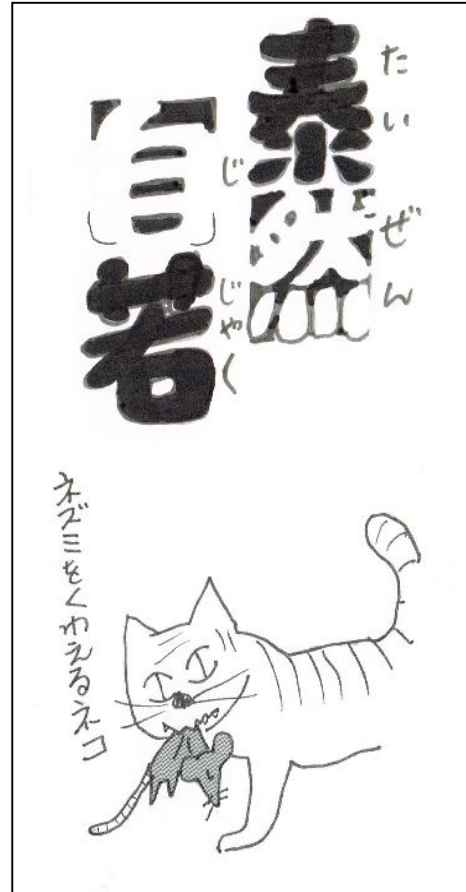 泰然
たいぜん
自若
じじゃく
ネズミをくわえるネコ